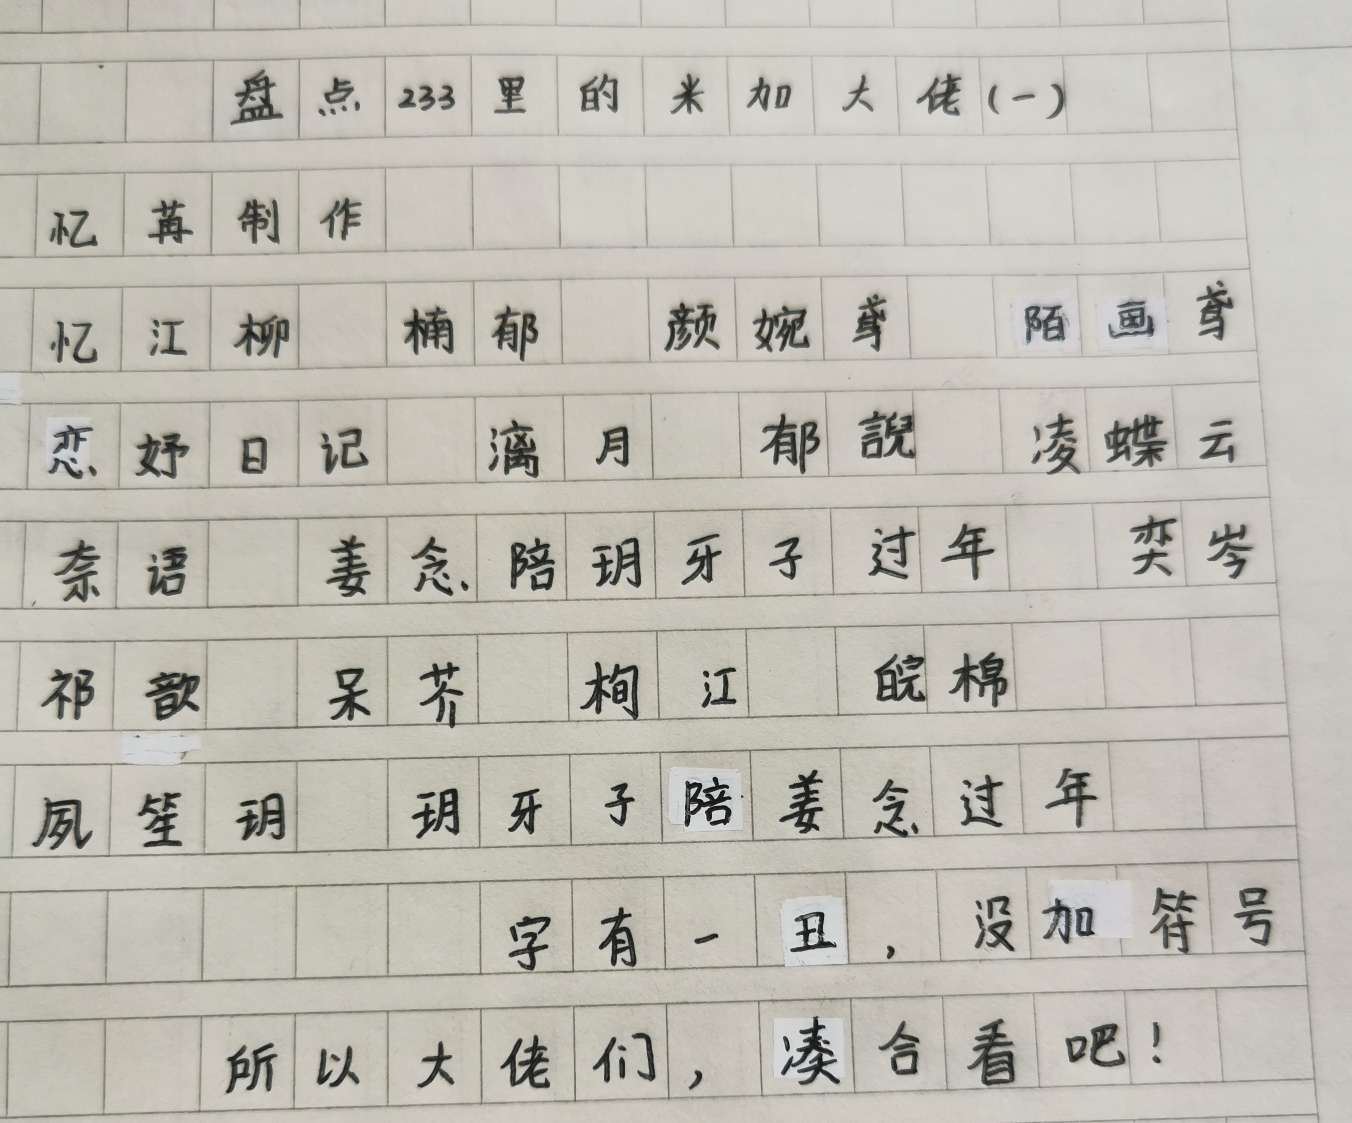 盘点233里的米加大佬(一)
忆苒制作
忆江柳 楠郁 颜婉鸢 陌画鸢
恋妤日记 漓月 郁誢 凌蝶云
奈语 姜念陪玥牙子过年 奕岑
祁歆 呆芥 栒江 皖棉
夙笙玥 玥牙子陪姜念过年
字有一丑,没加符号
所以大佬们,凑合看吧!